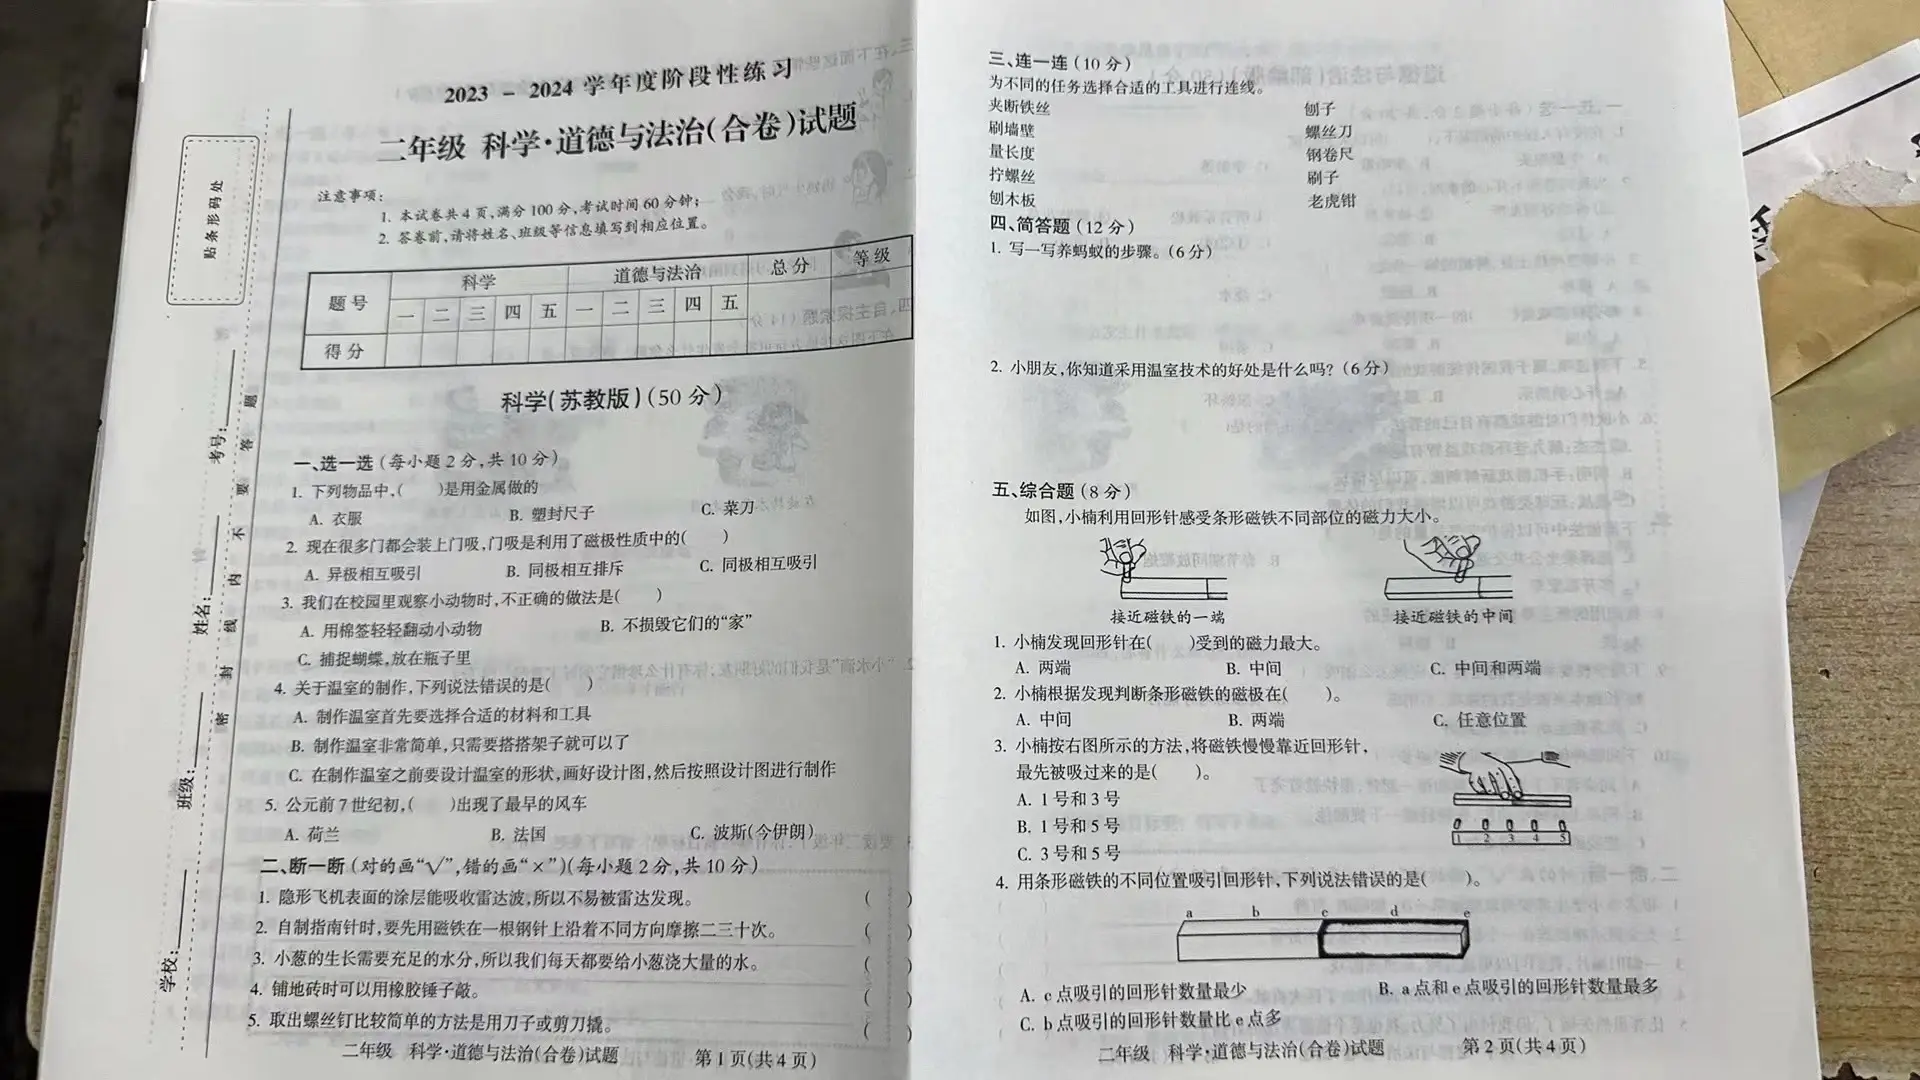 2023 - 2024 学年度阶段性练习
二年级 科学·道德与法治(合卷)试题
贴条形码处
注意事项:
1. 本试卷共4页,满分100分,考试时间60分钟;
2. 答卷前,请将姓名、班级等信息填写到相应位置。
题号 科学 道德与法治 总分 等级
一 二 三 四 五 一 二 三 四 五
得分
学校: 班级: 姓名: 考号:
密 封 线 内 不 要 答 题
科学(苏教版)(50分)
一、选一选(每小题2分,共10分)
1. 下列物品中,( )是用金属做的
A. 衣服 B. 塑封尺子 C. 菜刀
2. 现在很多门都会装上门吸,门吸是利用了磁极性质中的( )
A. 异极相互吸引 B. 同极相互排斥 C. 同极相互吸引
3. 我们在校园里观察小动物时,不正确的做法是( )
A. 用棉签轻轻翻动小动物 B. 不损毁它们的“家”
C. 捕捉蝴蝶,放在瓶子里
4. 关于温室的制作,下列说法错误的是( )
A. 制作温室首先要选择合适的材料和工具
B. 制作温室非常简单,只需要搭搭架子就可以了
C. 在制作温室之前要设计温室的形状,画好设计图,然后按照设计图进行制作
5. 公元前7世纪初,( )出现了最早的风车
A. 荷兰 B. 法国 C. 波斯(今伊朗)
二、断一断(对的画“√”,错的画“×”)(每小题2分,共10分)
1. 隐形飞机表面的涂层能吸收雷达波,所以不易被雷达发现。 ( )
2. 自制指南针时,要先用磁铁在一根钢针上沿着不同方向摩擦二三十次。 ( )
3. 小葱的生长需要充足的水分,所以我们每天都要给小葱浇大量的水。 ( )
4. 铺地砖时可以用橡胶锤子敲。 ( )
5. 取出螺丝钉比较简单的方法是用刀子或剪刀撬。 ( )
二年级 科学·道德与法治(合卷)试题 第1页(共4页)
三、连一连(10分)
为不同的任务选择合适的工具进行连线。
夹断铁丝 刨子
刷墙壁 螺丝刀
量长度 钢卷尺
拧螺丝 刷子
刨木板 老虎钳
四、简答题(12分)
1. 写一写养蚂蚁的步骤。(6分)
2. 小朋友,你知道采用温室技术的好处是什么吗?(6分)
五、综合题(8分)
如图,小楠利用回形针感受条形磁铁不同部位的磁力大小。
接近磁铁的一端 接近磁铁的中间
1. 小楠发现回形针在( )受到的磁力最大。
A. 两端 B. 中间 C. 中间和两端
2. 小楠根据发现判断条形磁铁的磁极在( )。
A. 中间 B. 两端 C. 任意位置
3. 小楠按右图所示的方法,将磁铁慢慢靠近回形针,
最先被吸过来的是( )。
A. 1号和3号
B. 1号和5号
C. 3号和5号
1 2 3 4 5
4. 用条形磁铁的不同位置吸引回形针,下列说法错误的是( )。
a b c d e
A. c点吸引的回形针数量最少 B. a点和e点吸引的回形针数量最多
C. b点吸引的回形针数量比e点多
二年级 科学·道德与法治(合卷)试题 第2页(共4页)